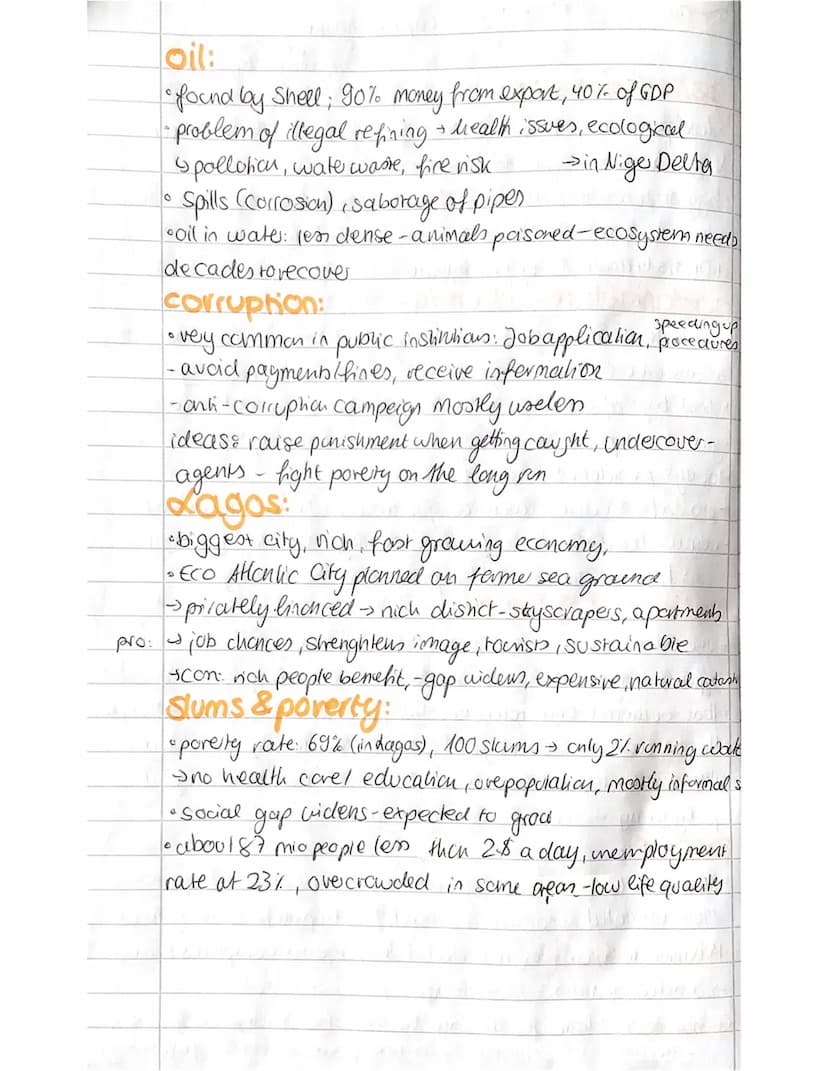 oil:
• found by Shell; 90% money from export, 40% of GDP
- problem of illegal refining → health issues, ecological
↳ pollution, water waste, fire risk → in Niger Delta
• Spills (corrosion), sabotage of pipes
• oil in water: less dense - animals poisoned - ecosystem needs
decades to recover
corruption:
• very common in public institutions: Job application, speeding up procedures
- avoid payments/fines, receive information
- anti-corruption campaign mostly useless
ideas: raise punishment when getting caught, undercover-
agents - fight poverty on the long run
Lagos:
• biggest city, rich, fast growing economy,
• Eco Atlantic City planned on former sea ground
→ privately financed → rich district - skyscrapers, apartments
pro: → job chances, strenghtens image, tourists, sustainable
→ con: rich people benefit, - gap widens, expensive, natural catash
Slums & poverty:
• poverty rate: 69% (in Lagos), 100 slums → only 2% running wat
→ no health care/ education, overpopulation, mostly informal s
• social gap widens - expected to grow
• about 87 mio people less than 2$ a day, unemployment
rate at 23%, overcrowded in some areas - low life quality